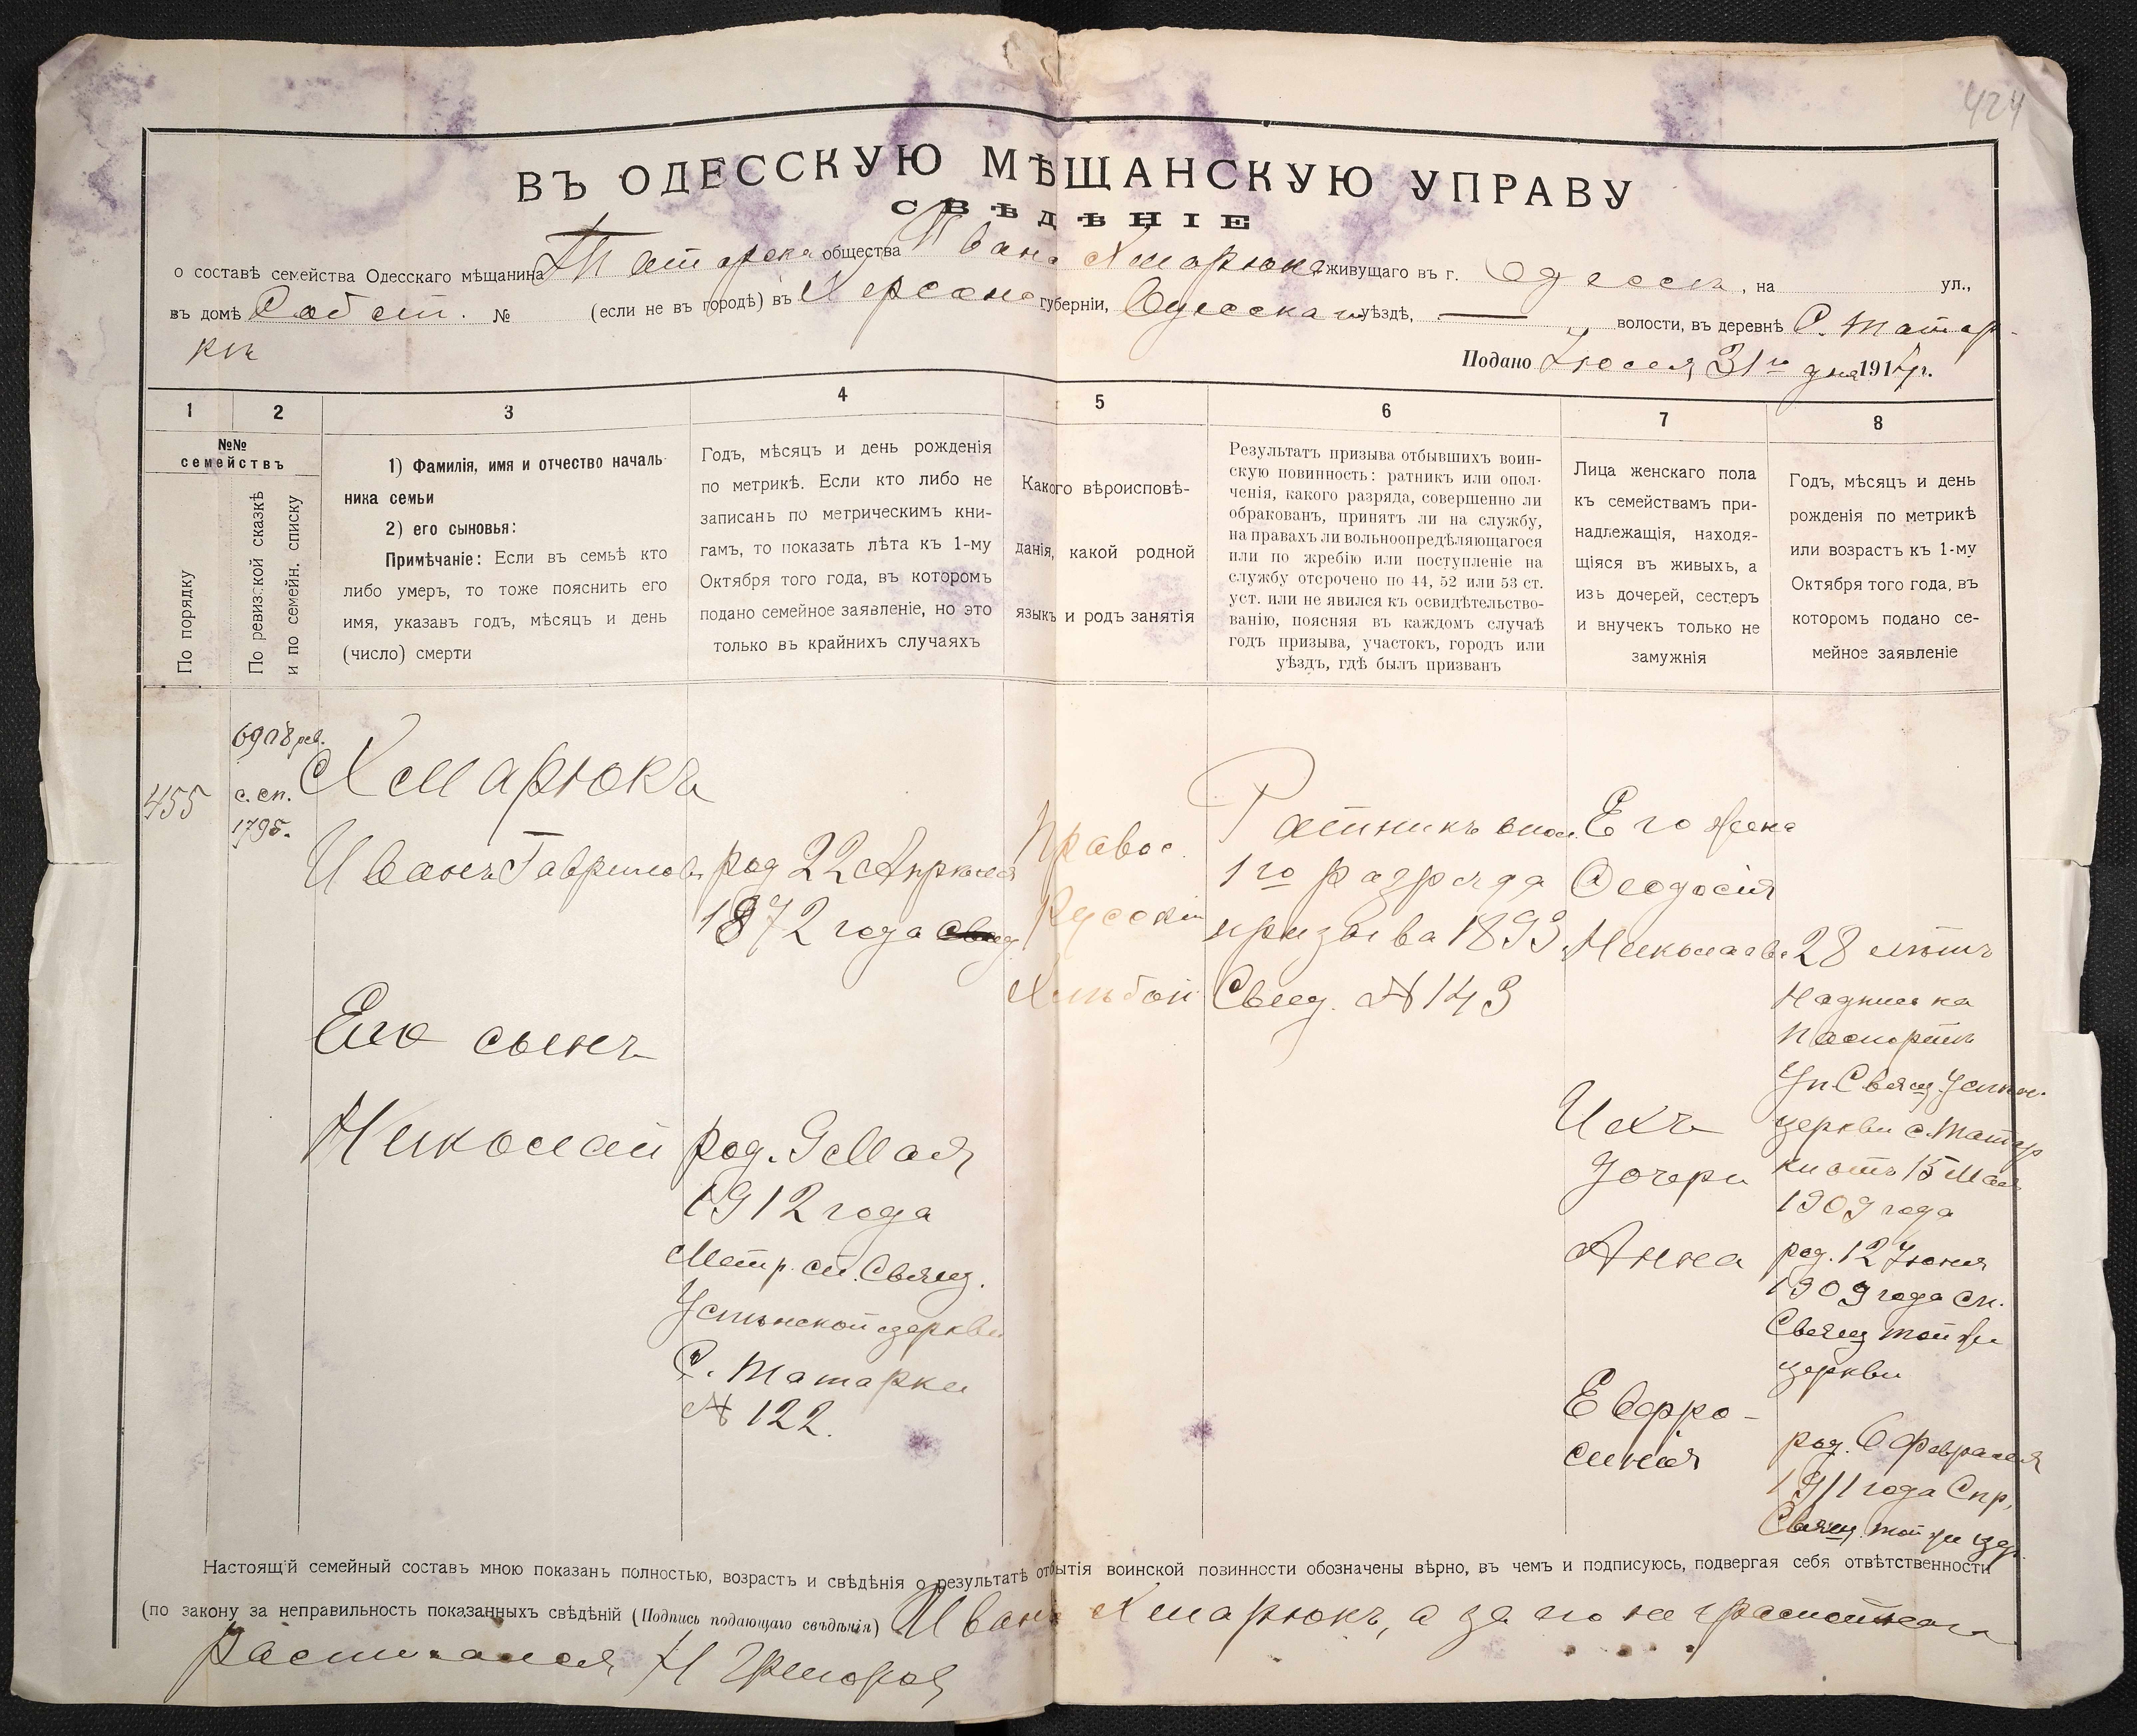 424
ВЪ ОДЕССКУЮ МѢЩАНСКУЮ УПРАВУ
СВѢДѢНІЕ
о составѣ семейства Одесскаго мѣщанина Татарска общества Ивана Хмарюка живущаго въ г. Одесса, на ул.,
въ домѣ Собст. № (если не въ городѣ) въ Херсонс губерніи, Одесскам уѣздѣ, — волости, въ деревнѣ С. Татар-
кѣ
Подано Іюля 31го дня 1914 г.
1 2 3 4 5 6 7 8
№№
семействъ
По порядку
По ревизской сказкѣ
и по семейн. списку
1) Фамилія, имя и отчество началь
ника семьи
2) его сыновья:
Примѣчаніе: Если въ семьѣ кто
либо умеръ, то тоже пояснить его
имя, указавъ годъ, мѣсяцъ и день
(число) смерти
Годъ, мѣсяцъ и день рожденія
по метрикѣ. Если кто либо не
записанъ по метрическимъ кни-
гамъ, то показать лѣта къ 1-му
Октября того года, въ которомъ
подано семейное заявленіе, но это
только въ крайнихъ случаяхъ
Какого вѣроисповѣ-
данія, какой родной
языкъ и родъ занятія
Результатъ призыва отбывшихъ воин-
скую повинность: ратникъ или опол-
ченія, какого разряда, совершенно ли
обракованъ, принятъ ли на службу,
на правахъ ли вольноопредѣляющагося
или по жребію или поступленіе на
службу отсрочено по 44, 52 или 53 ст.
уст. или не явился къ освидѣтельство-
ванію, поясняя въ каждомъ случаѣ
годъ призыва, участокъ, городъ или
уѣздъ, гдѣ былъ призванъ
Лица женскаго пола
къ семействамъ при-
надлежащія, находя-
щіяся въ живыхъ, а
изъ дочерей, сестеръ
и внучекъ только не
замужнія
Годъ, мѣсяцъ и день
рожденія по метрикѣ
или возрастъ къ 1-му
Октября того года, въ
которомъ подано се-
мейное заявленіе
455
рев.
с. сп.
1795.
Хмарюкъ
Иванъ Гаврилов
род 22 Апрѣля
1872 года
Правос.
Русскій
Хлѣбоп
Ратникъ опол.
1го разряда
призыва 1893
Свид. № 143
Его жена
Феодосія
Николаев.
28 лѣтъ
Надпись на
паспортѣ
Свящ. Успен.
церкви с. Татар
ки отъ 15 Мая
1909 года
Его сынъ
Николай
род. 9 Мая
1912 года
Метр. сп. Свящ.
Успенской церкви
С. Татарки
№ 122.
Ихъ
дочери
Анна
род. 12 Іюня
1909 года Сп.
Свящ той же
церкви
Евфро-
синія
род. 6 Февраля
1911 года Спр.
Свящ. той же цер.
Настоящій семейный составъ мною показанъ полностью, возрастъ и свѣдѣнія о результатѣ отбытія воинской повинности обозначены вѣрно, въ чемъ и подписуюсь, подвергая себя отвѣтственности
(по закону за неправильность показанныхъ свѣдѣній (Подпись подающаго свѣдѣнія) Иванъ Хмарюкъ, а за его неграмотнаго
росписался